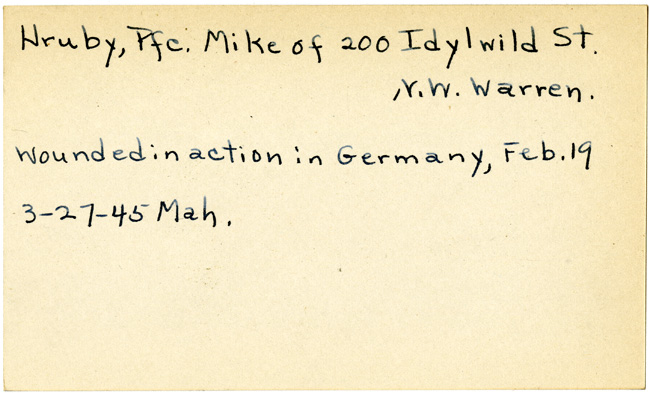 Hruby, Pfc. Mike of 200 Idylwild St.
N.W. Warren.
Wounded in action in Germany, Feb. 19
3-27-45 Mah.